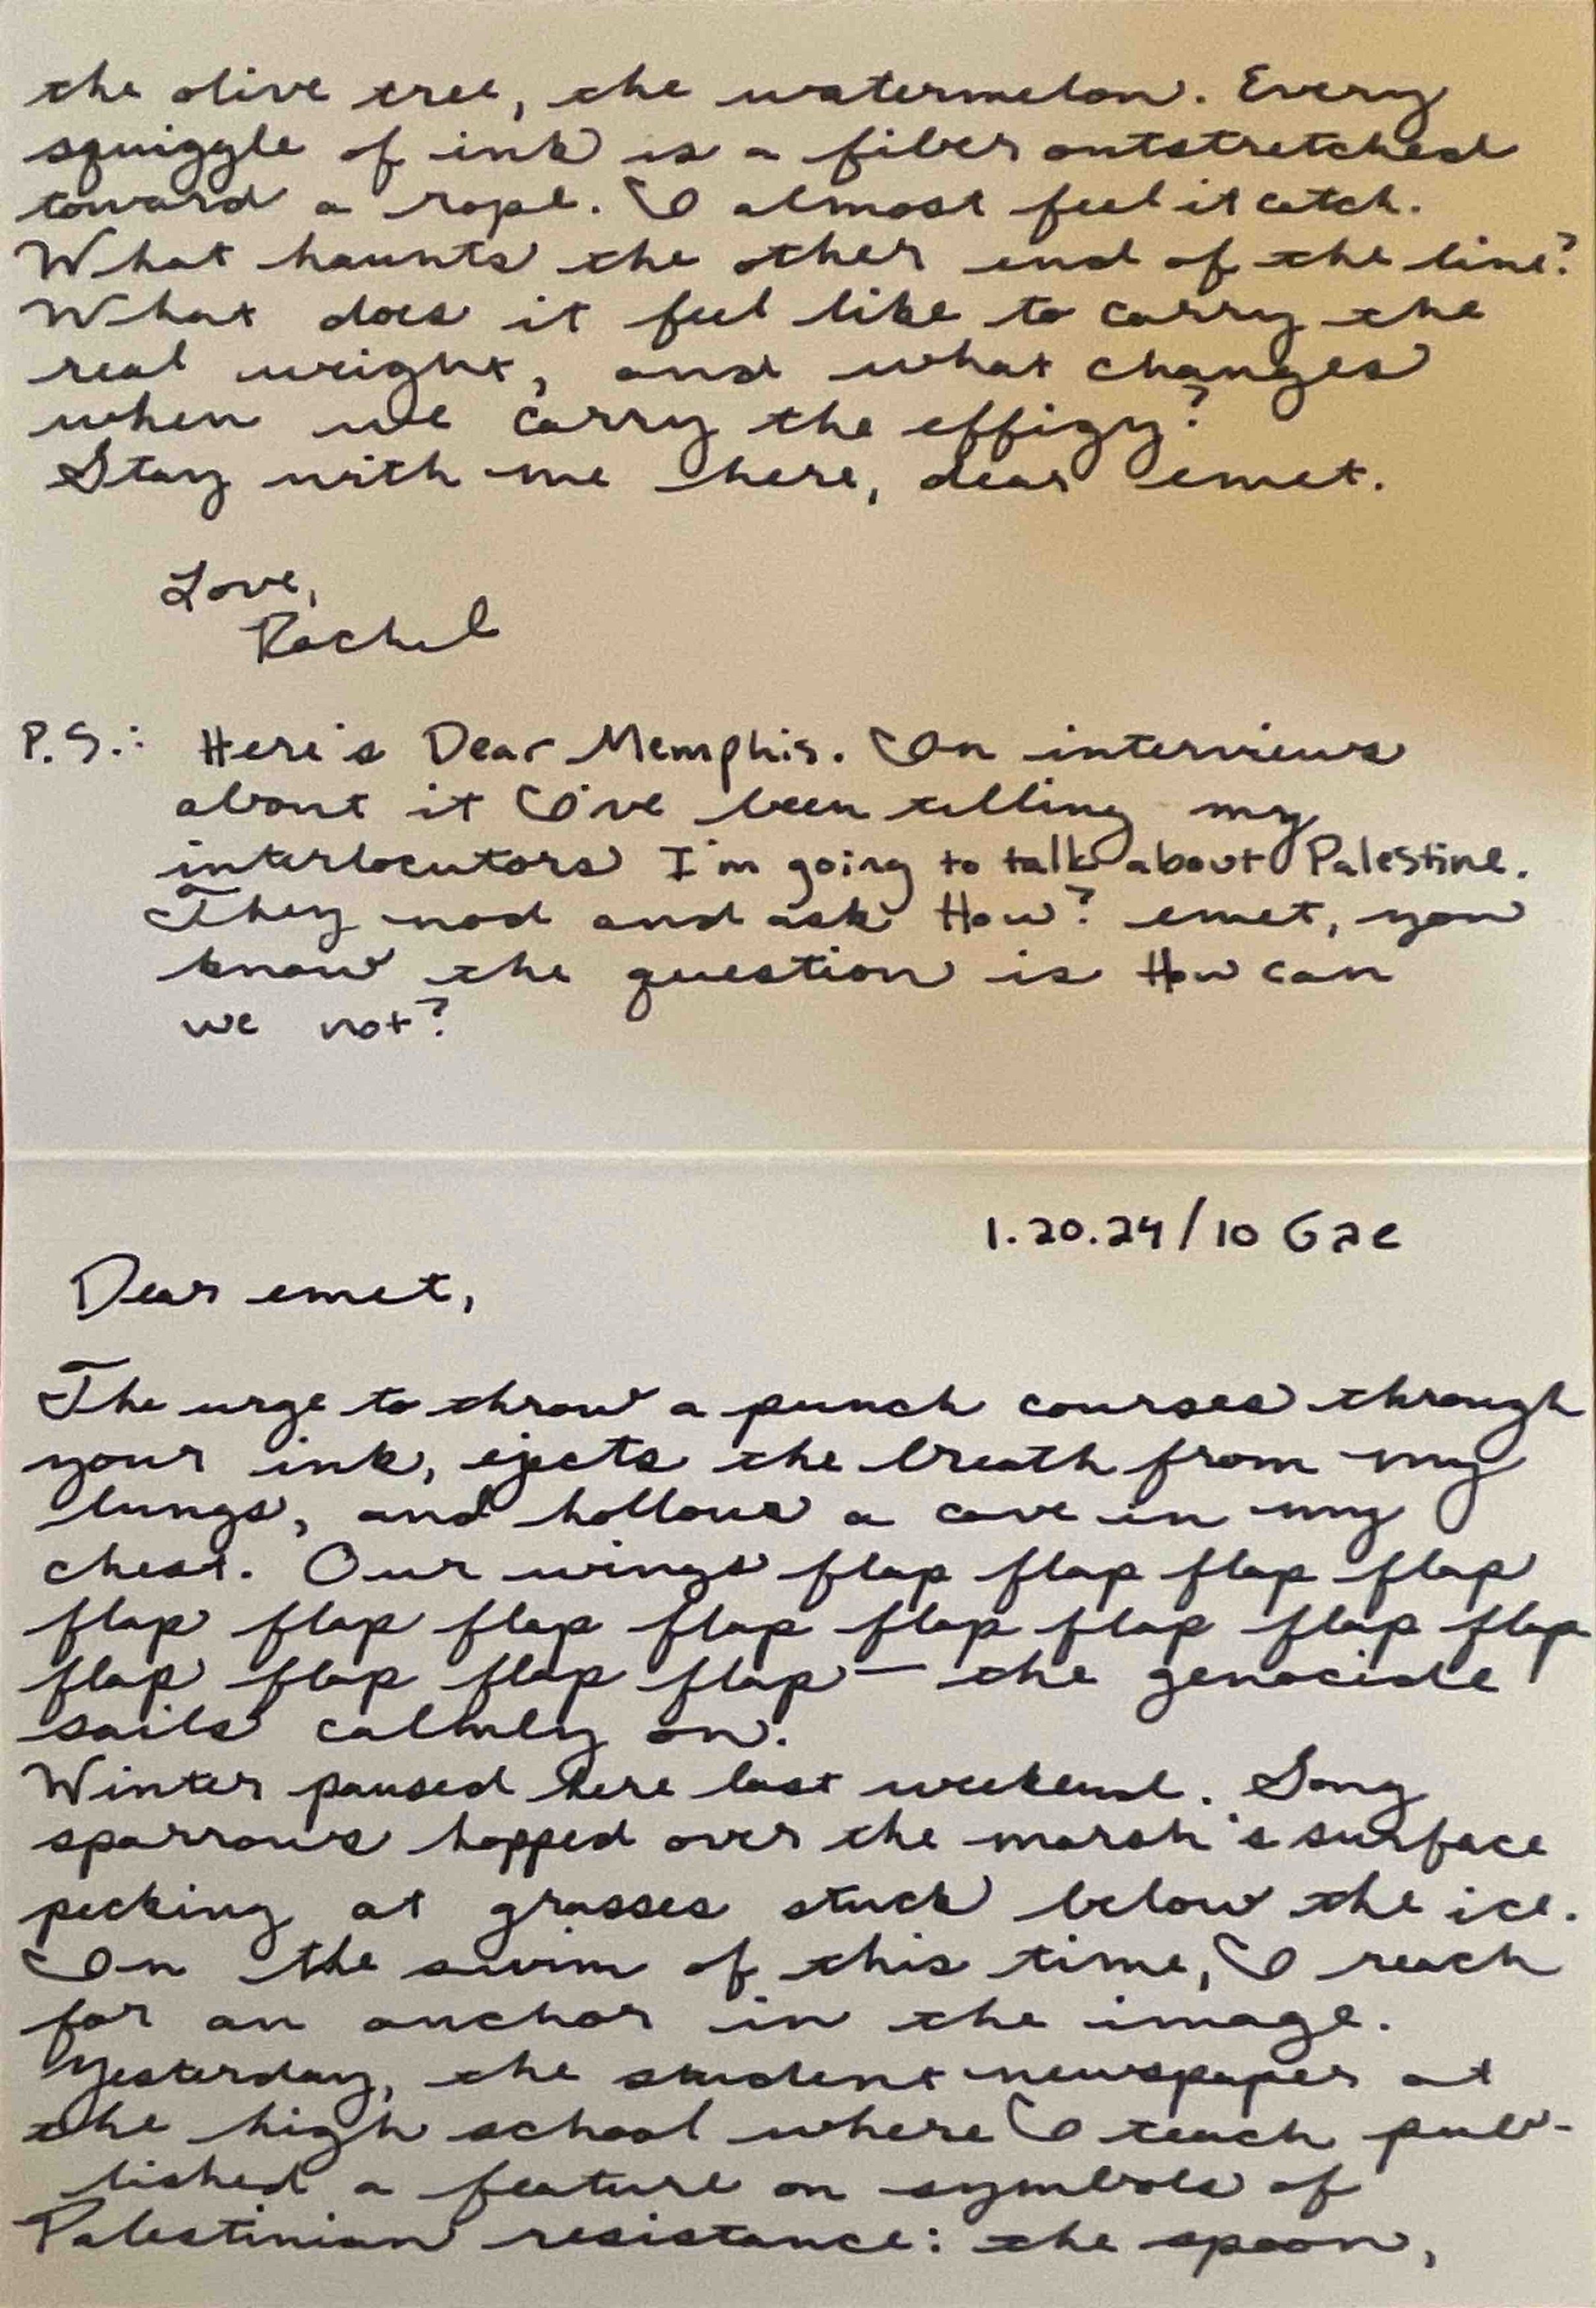 the olive tree, the watermelon. Every
squiggle of ink is a fiber outstretched
toward a rope. I almost feel it catch.
What haunts the other end of the line?
What does it feel like to carry the
real weight, and what changes
when we carry the effigy?
Stay with me here, dear emet.
Love,
Rachel
P.S.: Here's Dear Memphis. In interviews
about it I've been telling my
interlocutors I'm going to talk about Palestine.
They nod and ask How? emet, you
know the question is How can
we not?
1.20.24/10 Gze
Dear emet,
The urge to throw a punch courses through
your ink, ejects the breath from my
lungs, and hollows a cave in my
chest. Our wings flap flap flap flap
flap flap flap flap flap flap flap flap
flap flap flap flap — the genocide
sails calmly on.
Winter paused here last weekend. Song
sparrows hopped over the marsh's surface
pecking at grasses stuck below the ice.
In the swim of this time, I reach
for an anchor in the image.
Yesterday, the student newspaper at
the high school where I teach pub-
lished a feature on symbols of
Palestinian resistance: the spoon,